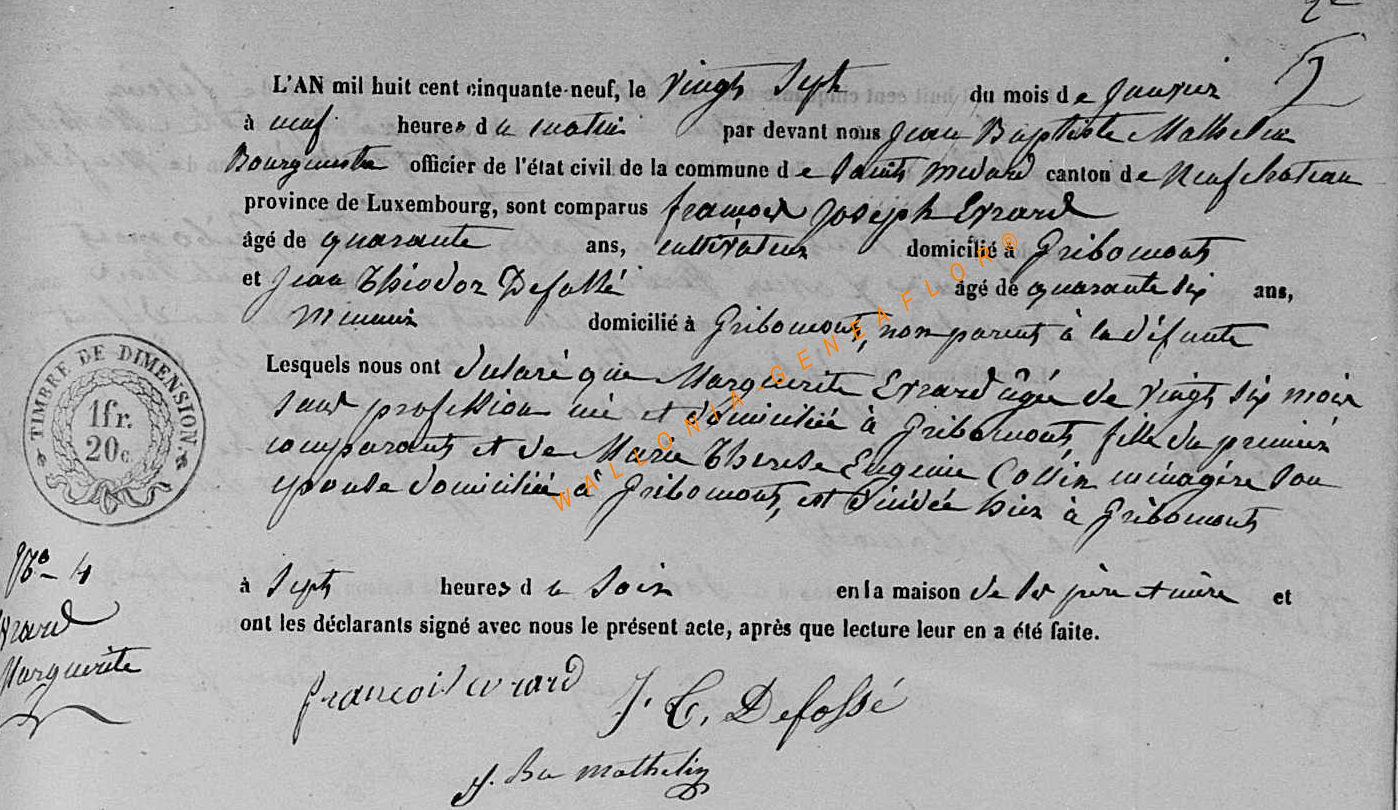 L'AN mil huit cent cinquante-neuf, le Vingt Sept du mois de Janvier
à neuf heures du matin par devant nous Jean Baptiste Mathelin
Bourgmestre officier de l'état civil de la commune de Saint Médard canton de Neufchateau
province de Luxembourg, sont comparus françois Joseph Evrard
âgé de quarante ans, cultivateur domicilié à Gribomont
et Jean Théodor Defossé âgé de quarante six ans,
domicilié à Gribomont, non parent à la défunte
Lesquels nous ont déclaré que Marguerite Evrard âgée de vingt six mois
sans profession née et domiciliée à Gribomont, fille du premier
comparant et de Marie Therese Eugenie Collin ménagère son
epouse domiciliée à Gribomont, est décédée hier à Gribomont
à Sept heures du Soir en la maison de ses père et mère et
ont les déclarants signé avec nous le présent acte, après que lecture leur en a été faite.
TIMBRE DE DIMENSION.
1fr.
20c.
No 4
Evrard
Marguerite
françois evrard J. T. Defossé
J. Bte mathelin
WALLONIA-GENEAFLOR®